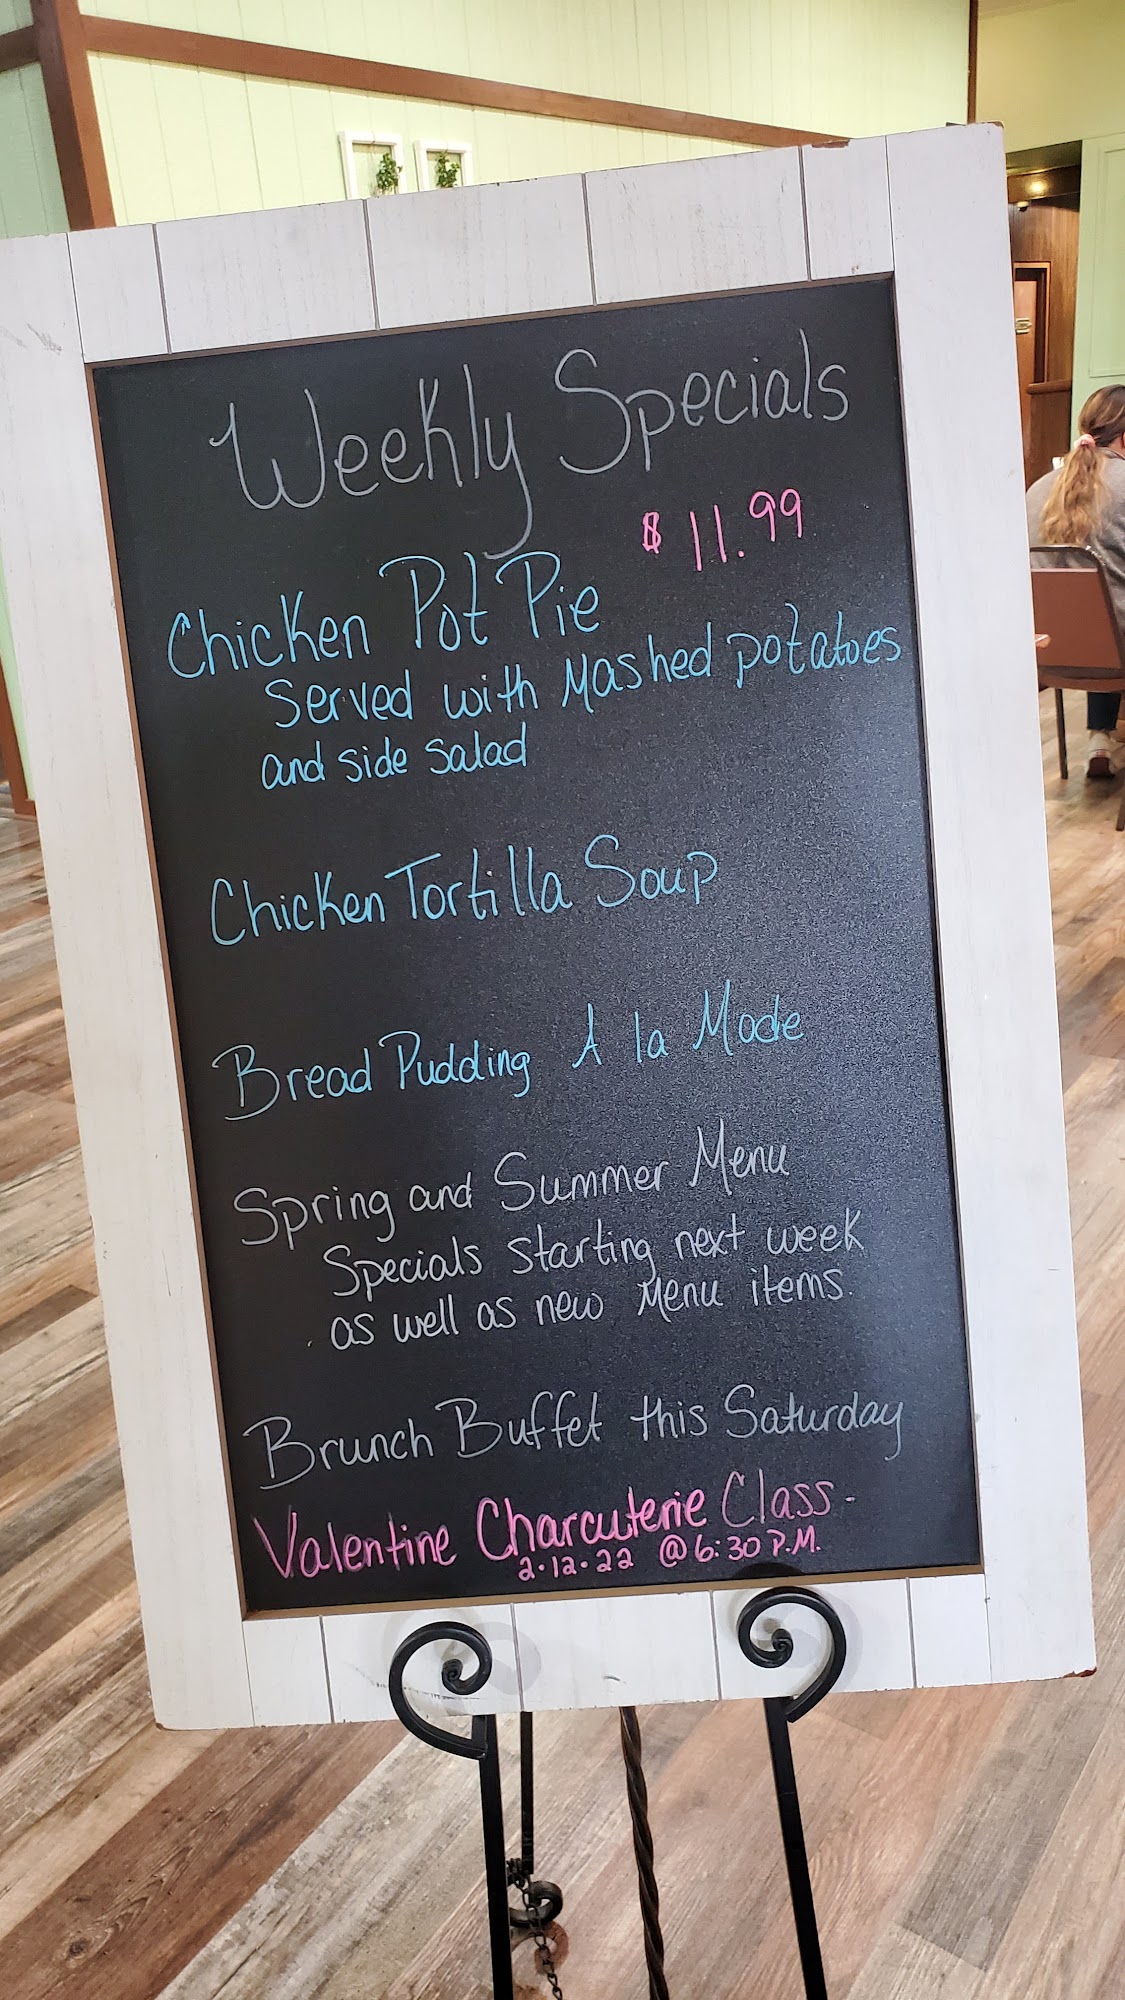 Weekly Specials
$11.99
Chicken Pot Pie
Served with Mashed potatoes
and side salad
Chicken Tortilla Soup
Bread Pudding A la Mode
Spring and Summer Menu
Specials starting next week
as well as new Menu items.
Brunch Buffet this Saturday
Valentine Charcuterie Class.
2.12.22 @ 6:30 P.M.